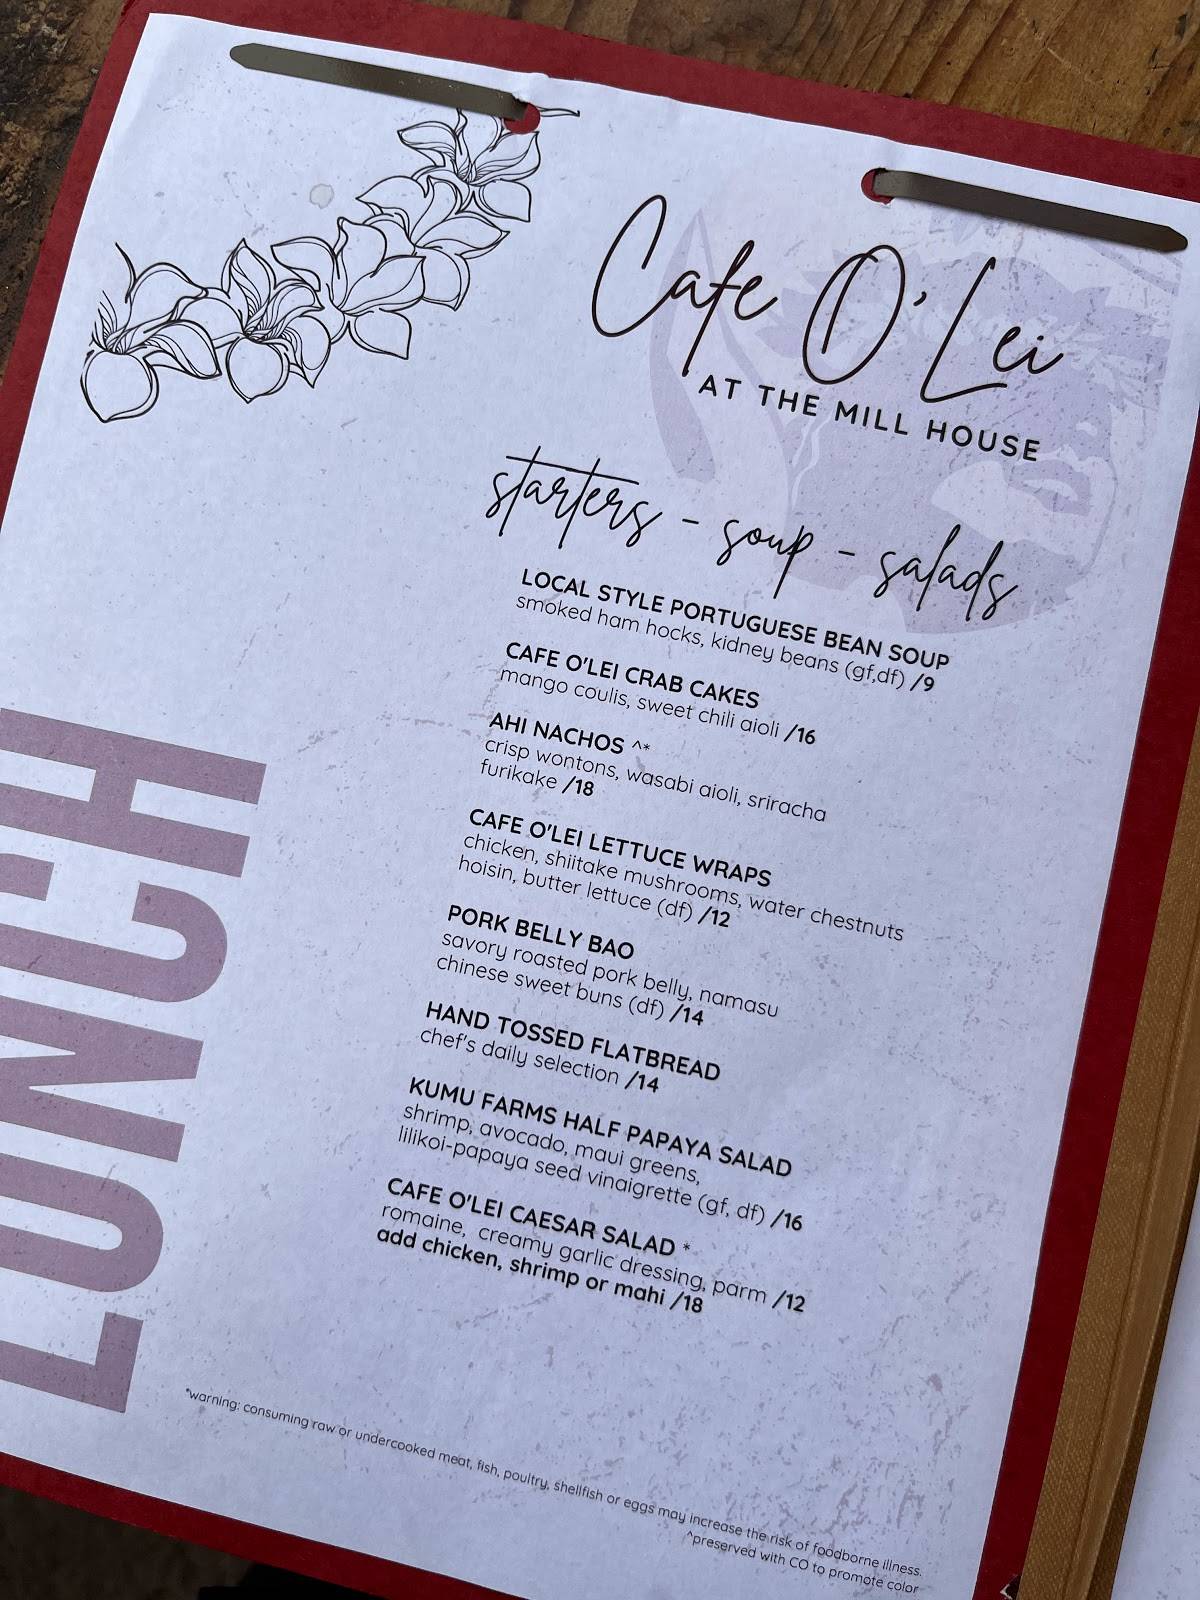 Cafe O'Lei
AT THE MILL HOUSE
starters - soup - salads
LOCAL STYLE PORTUGUESE BEAN SOUP
smoked ham hocks, kidney beans (gf,df) /9
CAFE O'LEI CRAB CAKES
mango coulis, sweet chili aioli /16
AHI NACHOS ^*
crisp wontons, wasabi aioli, sriracha
furikake /18
CAFE O'LEI LETTUCE WRAPS
chicken, shiitake mushrooms, water chestnuts
hoisin, butter lettuce (df) /12
PORK BELLY BAO
savory roasted pork belly, namasu
chinese sweet buns (df) /14
HAND TOSSED FLATBREAD
chef's daily selection /14
KUMU FARMS HALF PAPAYA SALAD
shrimp, avocado, maui greens,
lilikoi-papaya seed vinaigrette (gf, df) /16
CAFE O'LEI CAESAR SALAD *
romaine, creamy garlic dressing, parm /12
add chicken, shrimp or mahi /18
LUNCH
*warning: consuming raw or undercooked meat, fish, poultry, shellfish or eggs may increase the risk of foodborne illness.
^preserved with CO to promote color